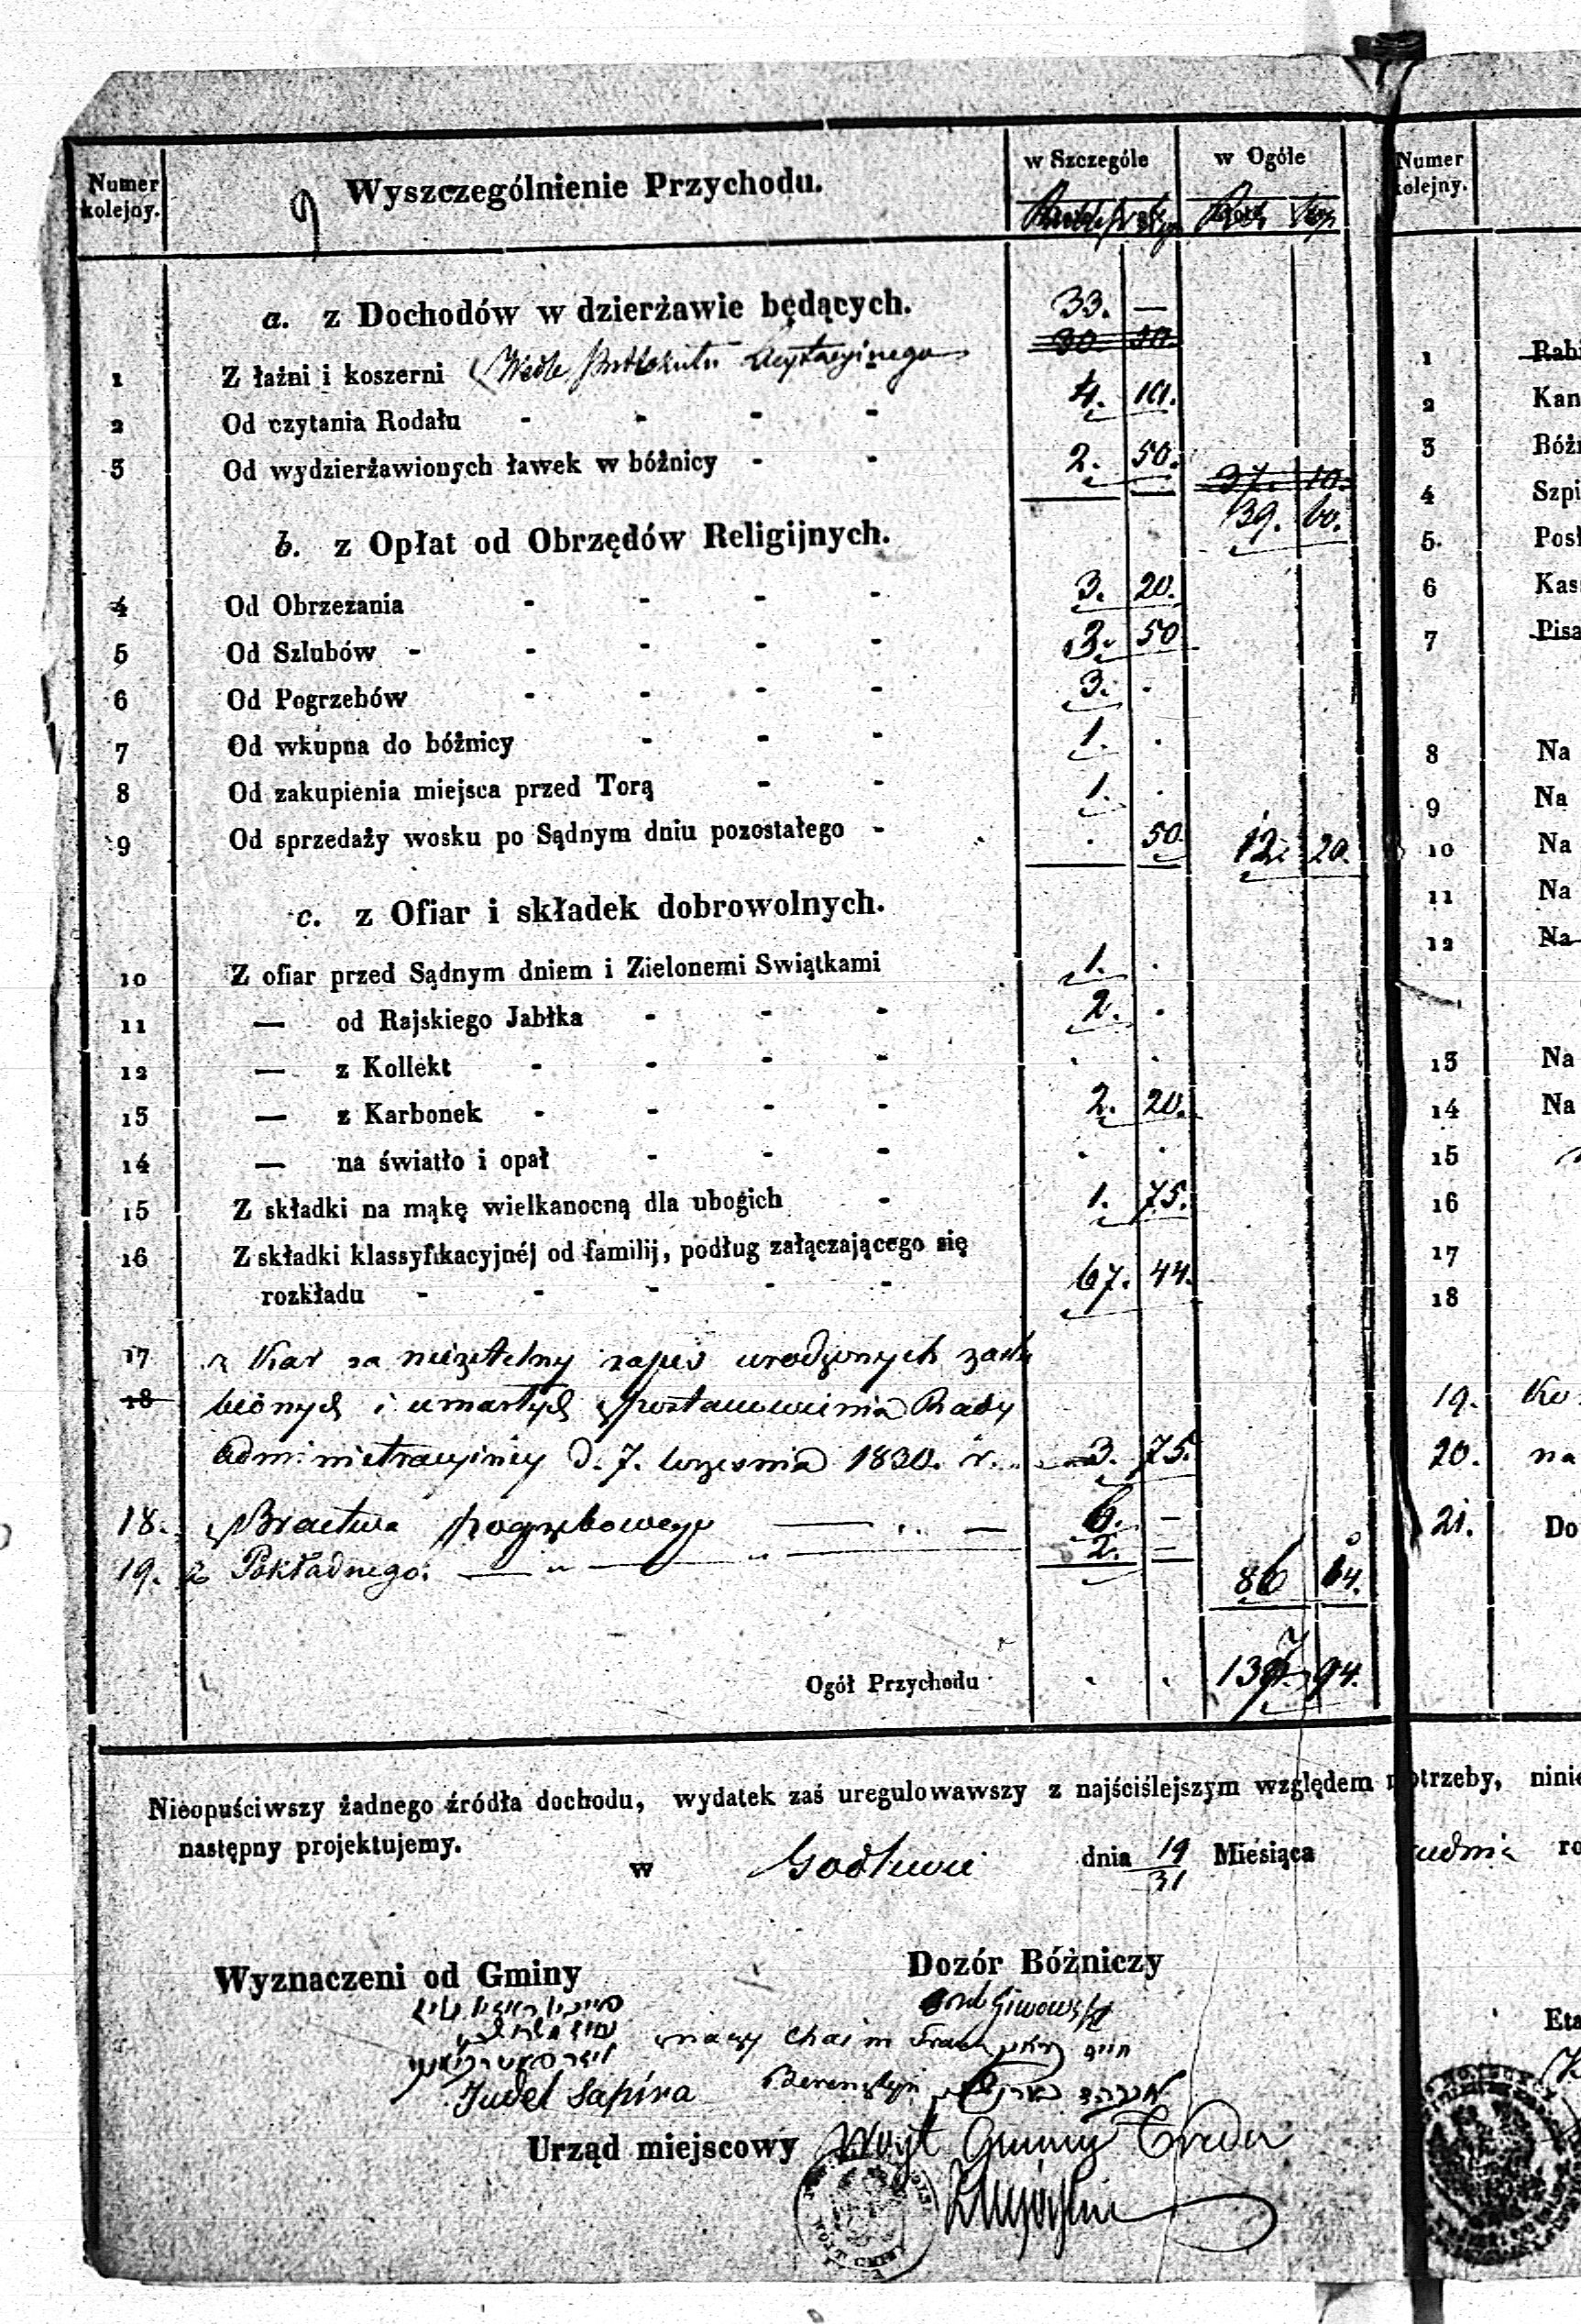 Numer kolejny. Wyszczególnienie Przychodu. w Szczególe w Ogóle
a. z Dochodów w dzierżawie będących.
33. —
30. 30.
1 Z łaźni i koszerni (Wedle Protokułu Licytacyinego
2 Od czytania Rodału - - - - 4. 10.
3 Od wydzierżawionych ławek w bóżnicy - - 2. 50.
37. 10.
39. 60.
b. z Opłat od Obrzędów Religijnych.
4 Od Obrzezania - - - - 3. 20.
5 Od Szlubów - - - - - 3. 50
6 Od Pogrzebów - - - - 3. .
7 Od wkupna do bóźnicy - - - 1. .
8 Od zakupienia miejsca przed Torą - - 1. .
9 Od sprzedaży wosku po Sądnym dniu pozostałego - . 50. 12. 20.
c. z Ofiar i składek dobrowolnych.
10 Z ofiar przed Sądnym dniem i Zielonemi Swiątkami 1. .
11 — od Rajskiego Jabłka - - - 2. .
12 — z Kollekt - - - - . .
13 — z Karbonek - - - - 2. 20.
14 — na światło i opał - - - . .
15 Z składki na mąkę wielkanocną dla ubogich - 1. 75.
16 Z składki klassyfikacyjnéj od familij, podług załączającego się
rozkładu - - - - - 67. 44.
17 z Kar za nierzetelny zapis urodzonych zaślu
18 bionych i umarłych z postanowienia Rady
Administracyiney d. 7. Września 1830. r. 3. 75.
18. z Bractwa pogrzebowego — — 6. —
19. z Pokładnego. — " — " — 2. — 86 64.
Ogół Przychodu . . 137. 94.
Nieopuściwszy żadnego źródła dochodu, wydatek zaś uregulowawszy z najściślejszym względem potrzeby, ninie
następny projektujemy.
w Godlewie dnia 19/31 Miesiąca udnia ro
Wyznaczeni od Gminy Dozór Bóżniczy
Chaim
Judel Sapira Berensztejn
Urząd miejscowy Wóyt Gminy
WÓJT GMINY
Numer kolejny.
1 Rabi
2 Kan
3 Bóźn
4 Szpi
5 Posł
6 Kas
7 Pisa
8 Na
9 Na
10 Na
11 Na
12 Na
13 Na
14 Na
15
16
17
18
19. Ko
20. na
21. Do
Eta